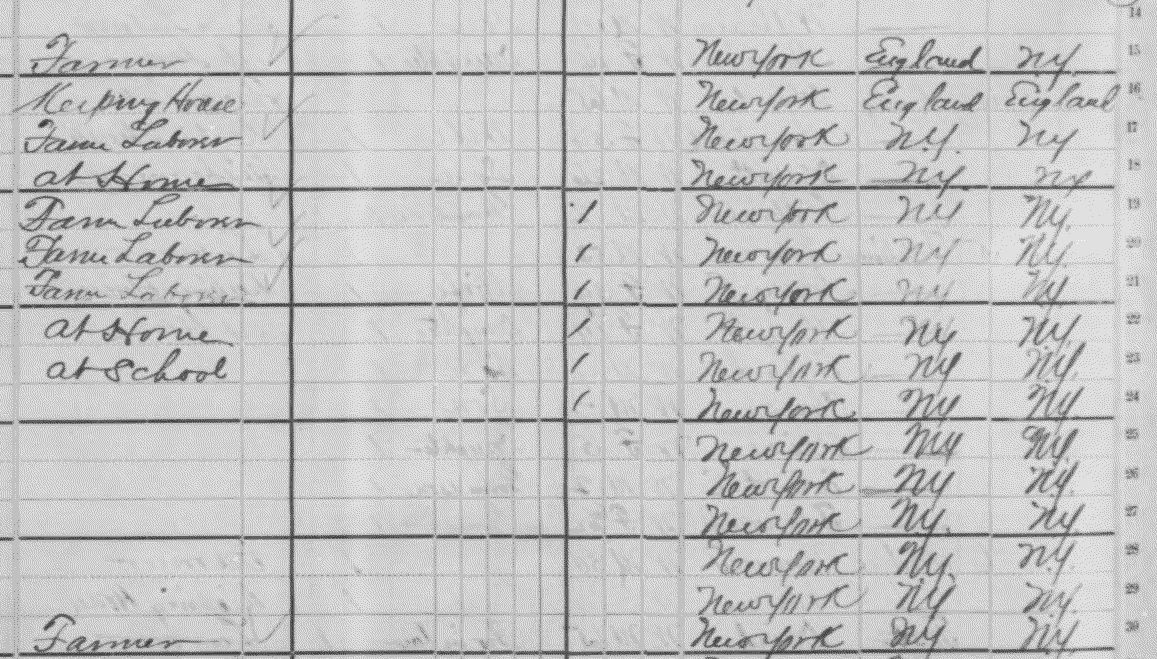 14
Farmer New York England NY 15
Keeping House New York England England 16
Farm Laborer New York N.Y. NY 17
at Home New York NY. NY 18
Farm Laborer 1 New York NY NY. 19
Farm Laborer 1 New York NY NY. 20
Farm Laborer 1 New York NY NY 21
at Home 1 New York NY NY. 22
at School 1 New York NY NY. 23
1 New York NY NY. 24
New York NY NY. 25
New York NY NY. 26
New York NY. NY 27
New York NY. NY. 28
New York NY NY. 29
Farmer New York NY NY 30